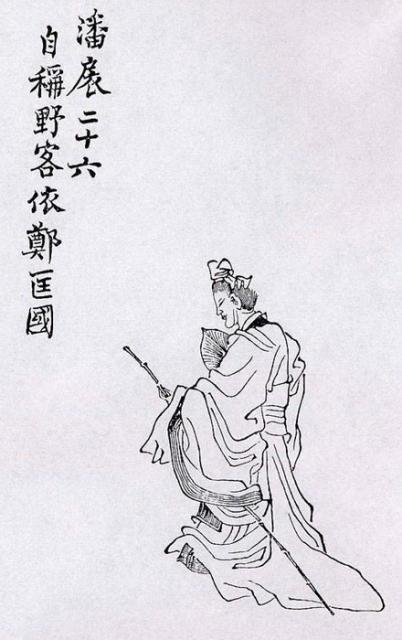 潘扆二十六
自稱野客依鄭匡國